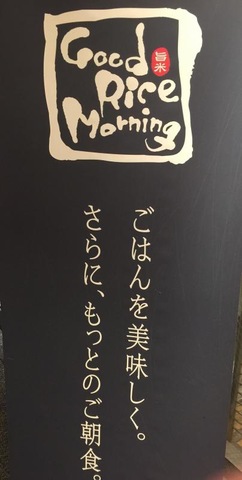 Good
旨米
Rice
Morning
ごはんを美味しく。
さらに、もっとのご朝食。